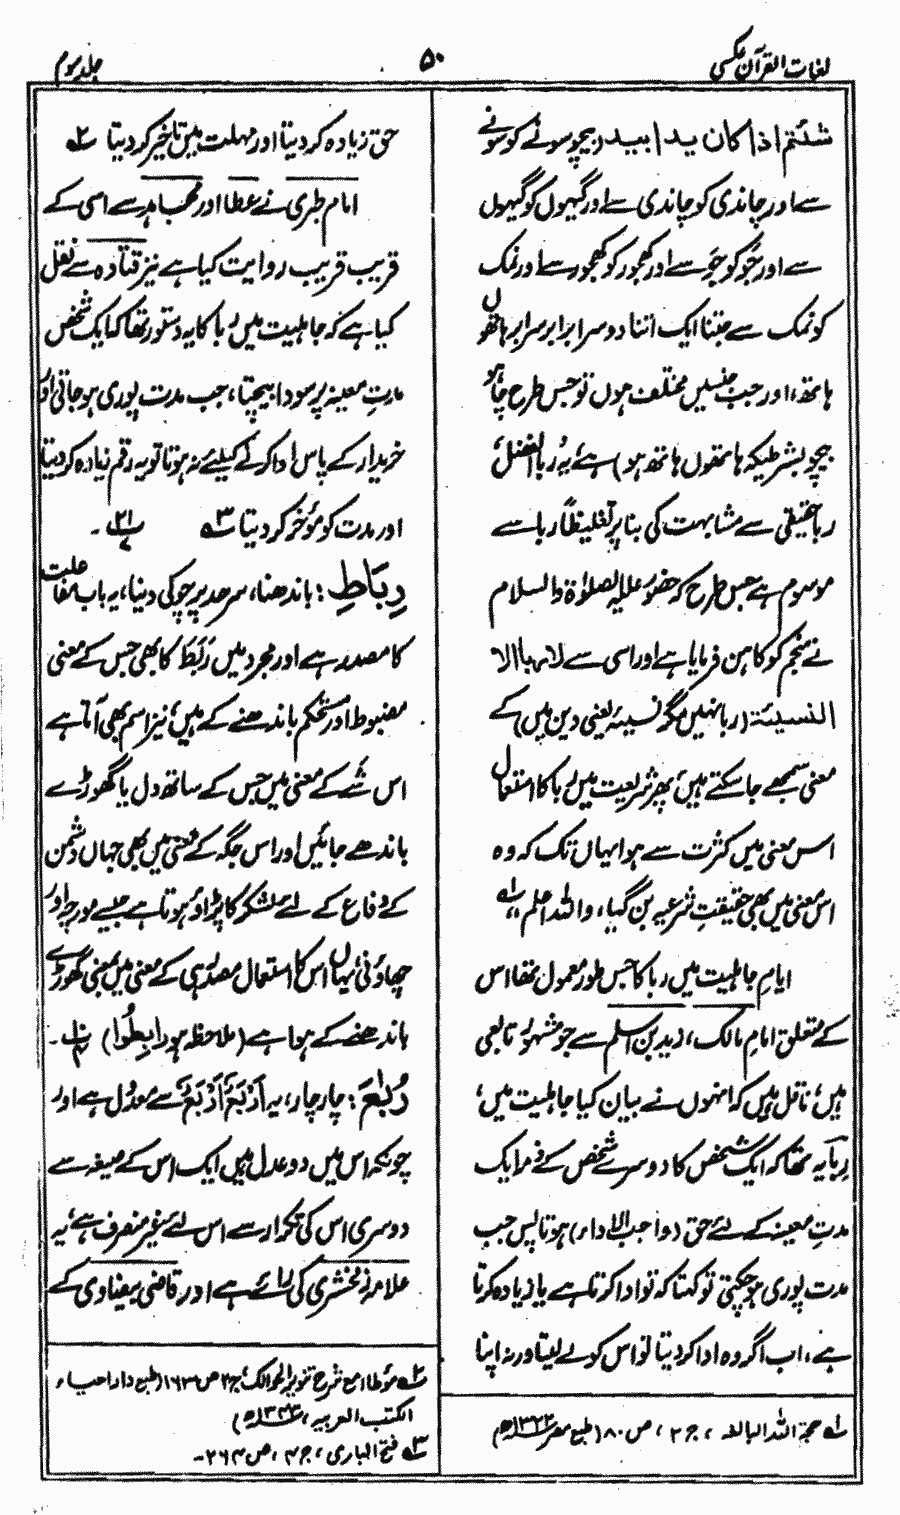 لغات القرآن عکسی
۵۰
جلد سوم
شئتم اذا کان یدا بید (بیچو سونے کو سونے
سے اور چاندی کو چاندی سے اور گیہوں کو گیہوں
سے اور جَو کو جَو سے اور کھجور کو کھجور سے اور نمک
کو نمک سے جتنا ایک اتنا دوسرا برابر سرابر ہاتھوں
ہاتھ، اور جب جنسیں مختلف ہوں تو جس طرح چاہو
بیچو بشرطیکہ ہاتھوں ہاتھ ہو) ہے، یہ رباالفضل
رباحقیقی سے مشابہت کی بنا پر تغلیظاً ربا سے
موسوم ہے جس طرح کہ حضور علیہ الصلوٰۃ والسلام
نے منجم کو کاہن فرمایا ہے اور اسی سے لا ربا الا
النسیئۃ (ربا نہیں مگر نسیئہ یعنی دین میں) کے
معنی سمجھے جا سکتے ہیں، پھر شریعت میں ربا کا استعمال
اس معنی میں کثرت سے ہوا یہاں تک کہ وہ
اس معنی میں بھی حقیقتِ شرعیہ بن گیا، واللہ اعلم لہ
ایامِ جاہلیت میں ربا کا جس طور معمول تھا اس
کے متعلق امامِ مالک، زید بن اسلم سے جو مشہور تابعی
ہیں، ناقل ہیں کہ انہوں نے بیان کیا جاہلیت میں،
رِبا یہ تھا کہ ایک شخص کا دوسرے شخص کے ذمہ ایک
مدتِ معینہ کے لئے حق (واجب الاداء) ہوتا پس جب
مدت پوری ہو چکتی تو کہتا کہ تو ادا کرتا ہے یا زیادہ کرتا
ہے، اب اگر وہ ادا کر دیتا تو اس کو لے لیتا ورنہ اپنا
لہ حجۃ اللہ البالغہ، ج ۲، ص ۸۰ (طبع مصر ۱۳۲۲ھ)
حق زیادہ کر دیتا اور مہلت میں تاخیر کر دیتا ۲ہ
امام طبری نے عطا اور مجاہد سے اسی کے
قریب قریب روایت کیا ہے نیز قتادہ سے نقل
کیا ہے کہ جاہلیت میں ربا کا یہ دستور تھا کہ ایک شخص
مدتِ معینہ پر سودا بیچتا، جب مدت پوری ہو جاتی اور
خریدار کے پاس ادا کرنے کیلئے نہ ہوتا تو یہ رقم زیادہ کر دیتا
اور مدت کو مؤخر کر دیتا ۳ہ
رِبَاطِ : باندھنا، سرحد پر چوکی دینا، یہ باب مفاعلت
کا مصدر ہے اور مجرد میں رَبَطَ کا بھی جس کے معنی
مضبوط اور مستحکم باندھنے کے ہیں، نیز اسم بھی آتا ہے
اس شے کے معنی میں جس کے ساتھ دل یا گھوڑے
باندھے جائیں اور اس جگہ کے معنی میں بھی جہاں دشمن
کے دفاع کے لئے لشکر کا پڑاؤ ہوتا ہے جیسے مورچہ اور
چھاؤنی، یہاں اس کا استعمال مصدر ہی کے معنی میں بمعنی گھوڑے
باندھنے کے ہوا ہے (ملاحظہ ہو رَابِطُوا)
رُبٰعَ : چار چار، یہ اَرْبَعَ اَرْبَعَ سے معدول ہے اور
چونکہ اس میں دو عدل ہیں ایک اس کے صیغہ سے
دوسری اس کی تکرار سے اس لئے غیر منصرف ہے، یہ
علامہ زمخشری کی رائے ہے اور قاضی بیضاوی کے
۲ہ مؤطا مع شرح تنویر الحوالک، ج ۲ ص ۱۶۳ (طبع دار احیاء
الکتب العربیہ، ۱۳۴۳ھ)
۳ہ فتح الباری، ج ۴، ص ۲۶۴۔